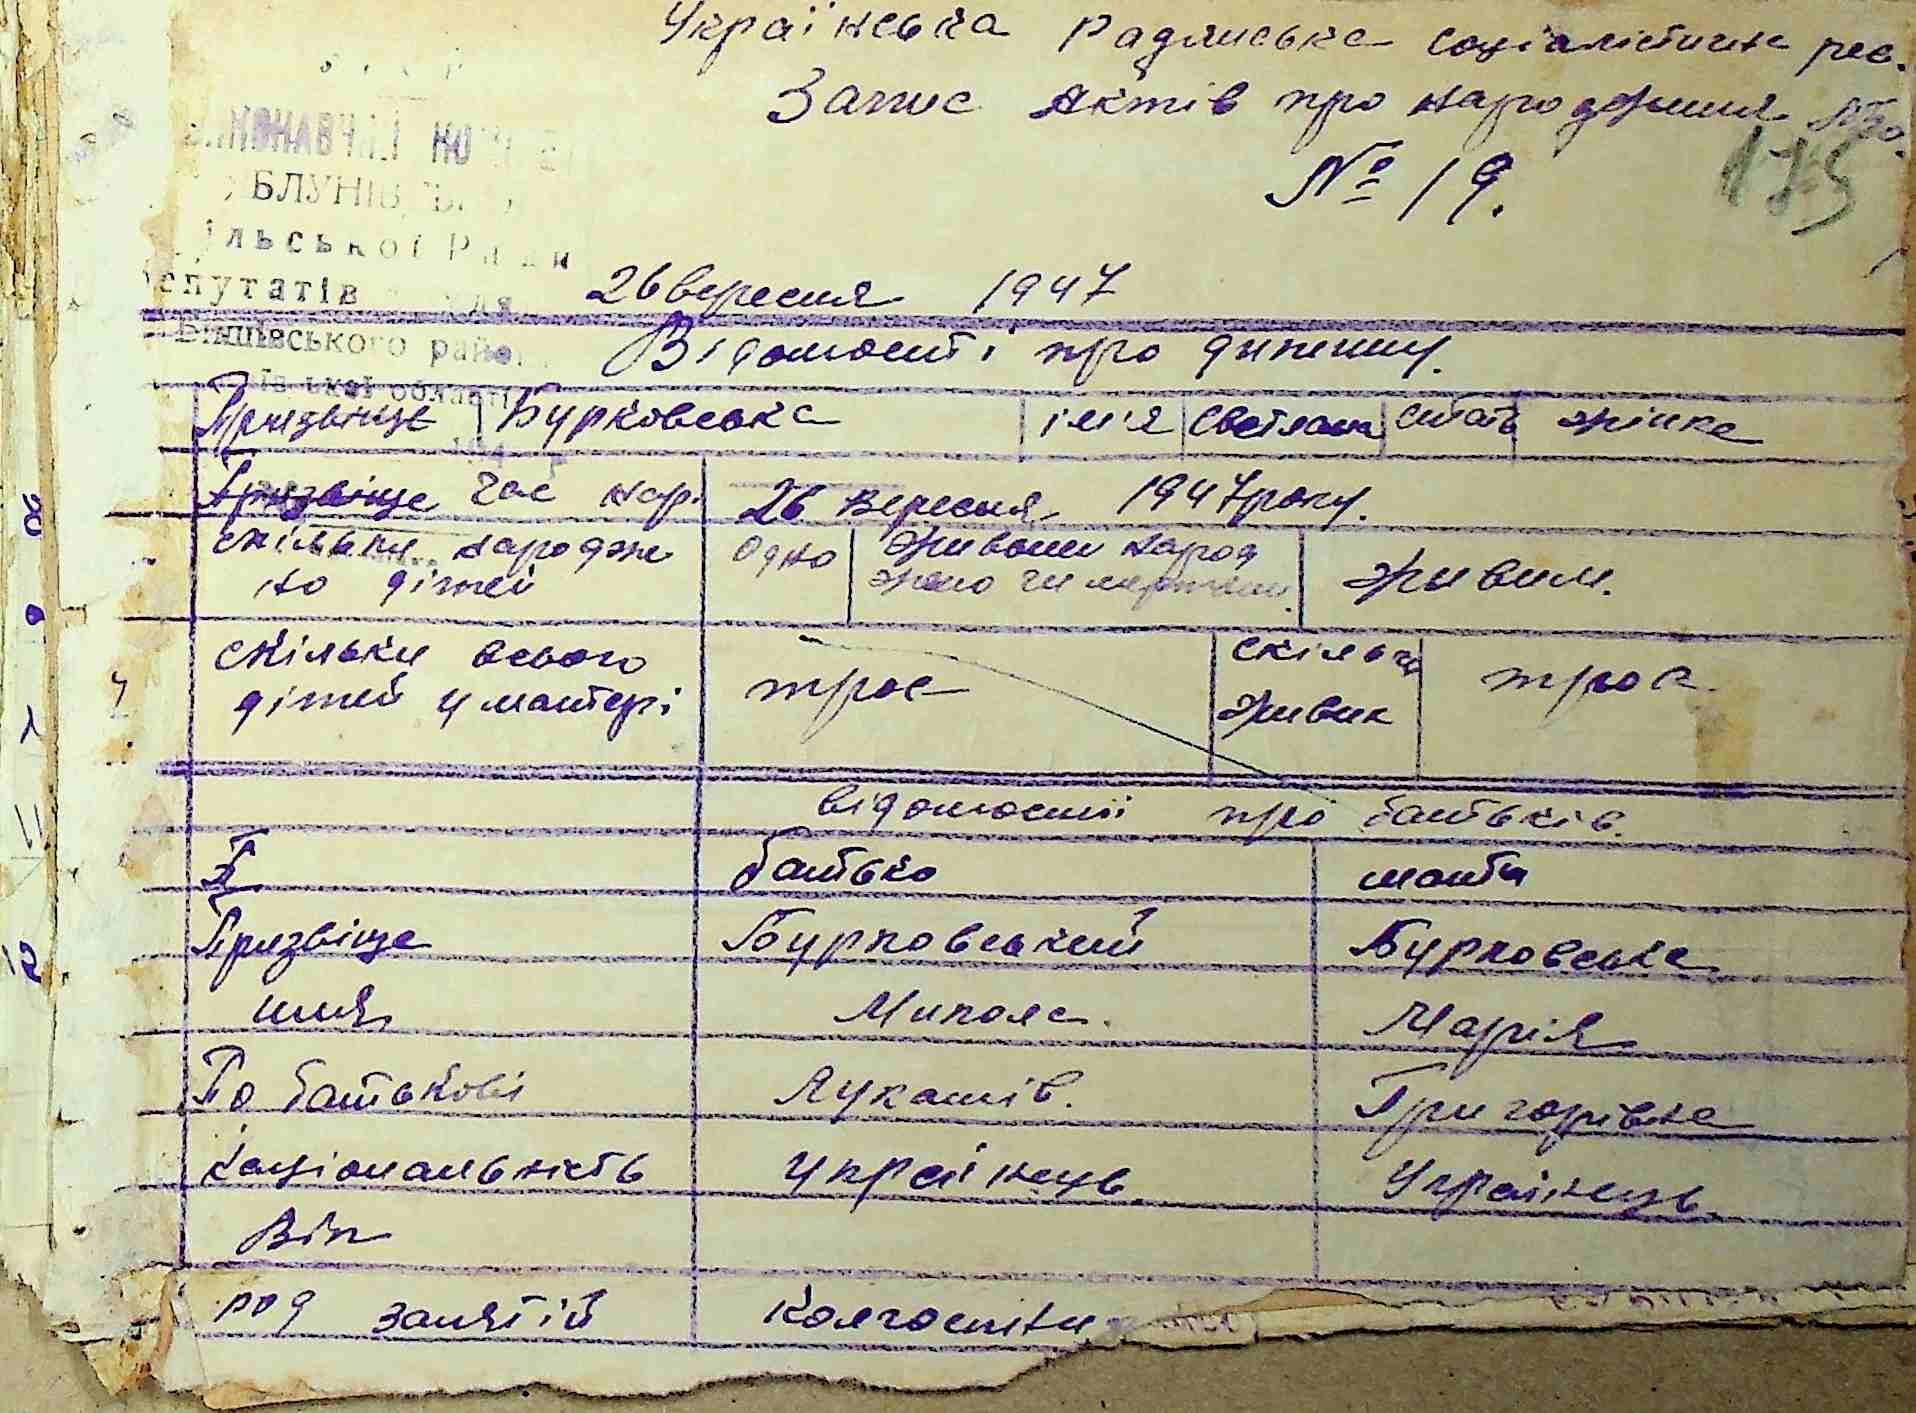 Українська Радянська соціалістична рес.
Запис Актів про народження
№ 19.
175
сільської Ради
депутатів
району
області
26 вересня 1947
Відомості про дитину.
Призвіще Бурковська ім'я Светлана стать жінка
Призвіще час нар. 26 Вересня 1947 року.
скільки народже но дітей одно живими народ жено чи мертвим. живим.
скільки всього дітей у матері троє скільки живих троє.
відомості про батьків.
П батько мати
Призвіще Бурковський Бурковська
имя Микола. Марія
По батькові Лукашів. Григорівна
Національність українець. Українець.
Вік
род занятій Колгоспни